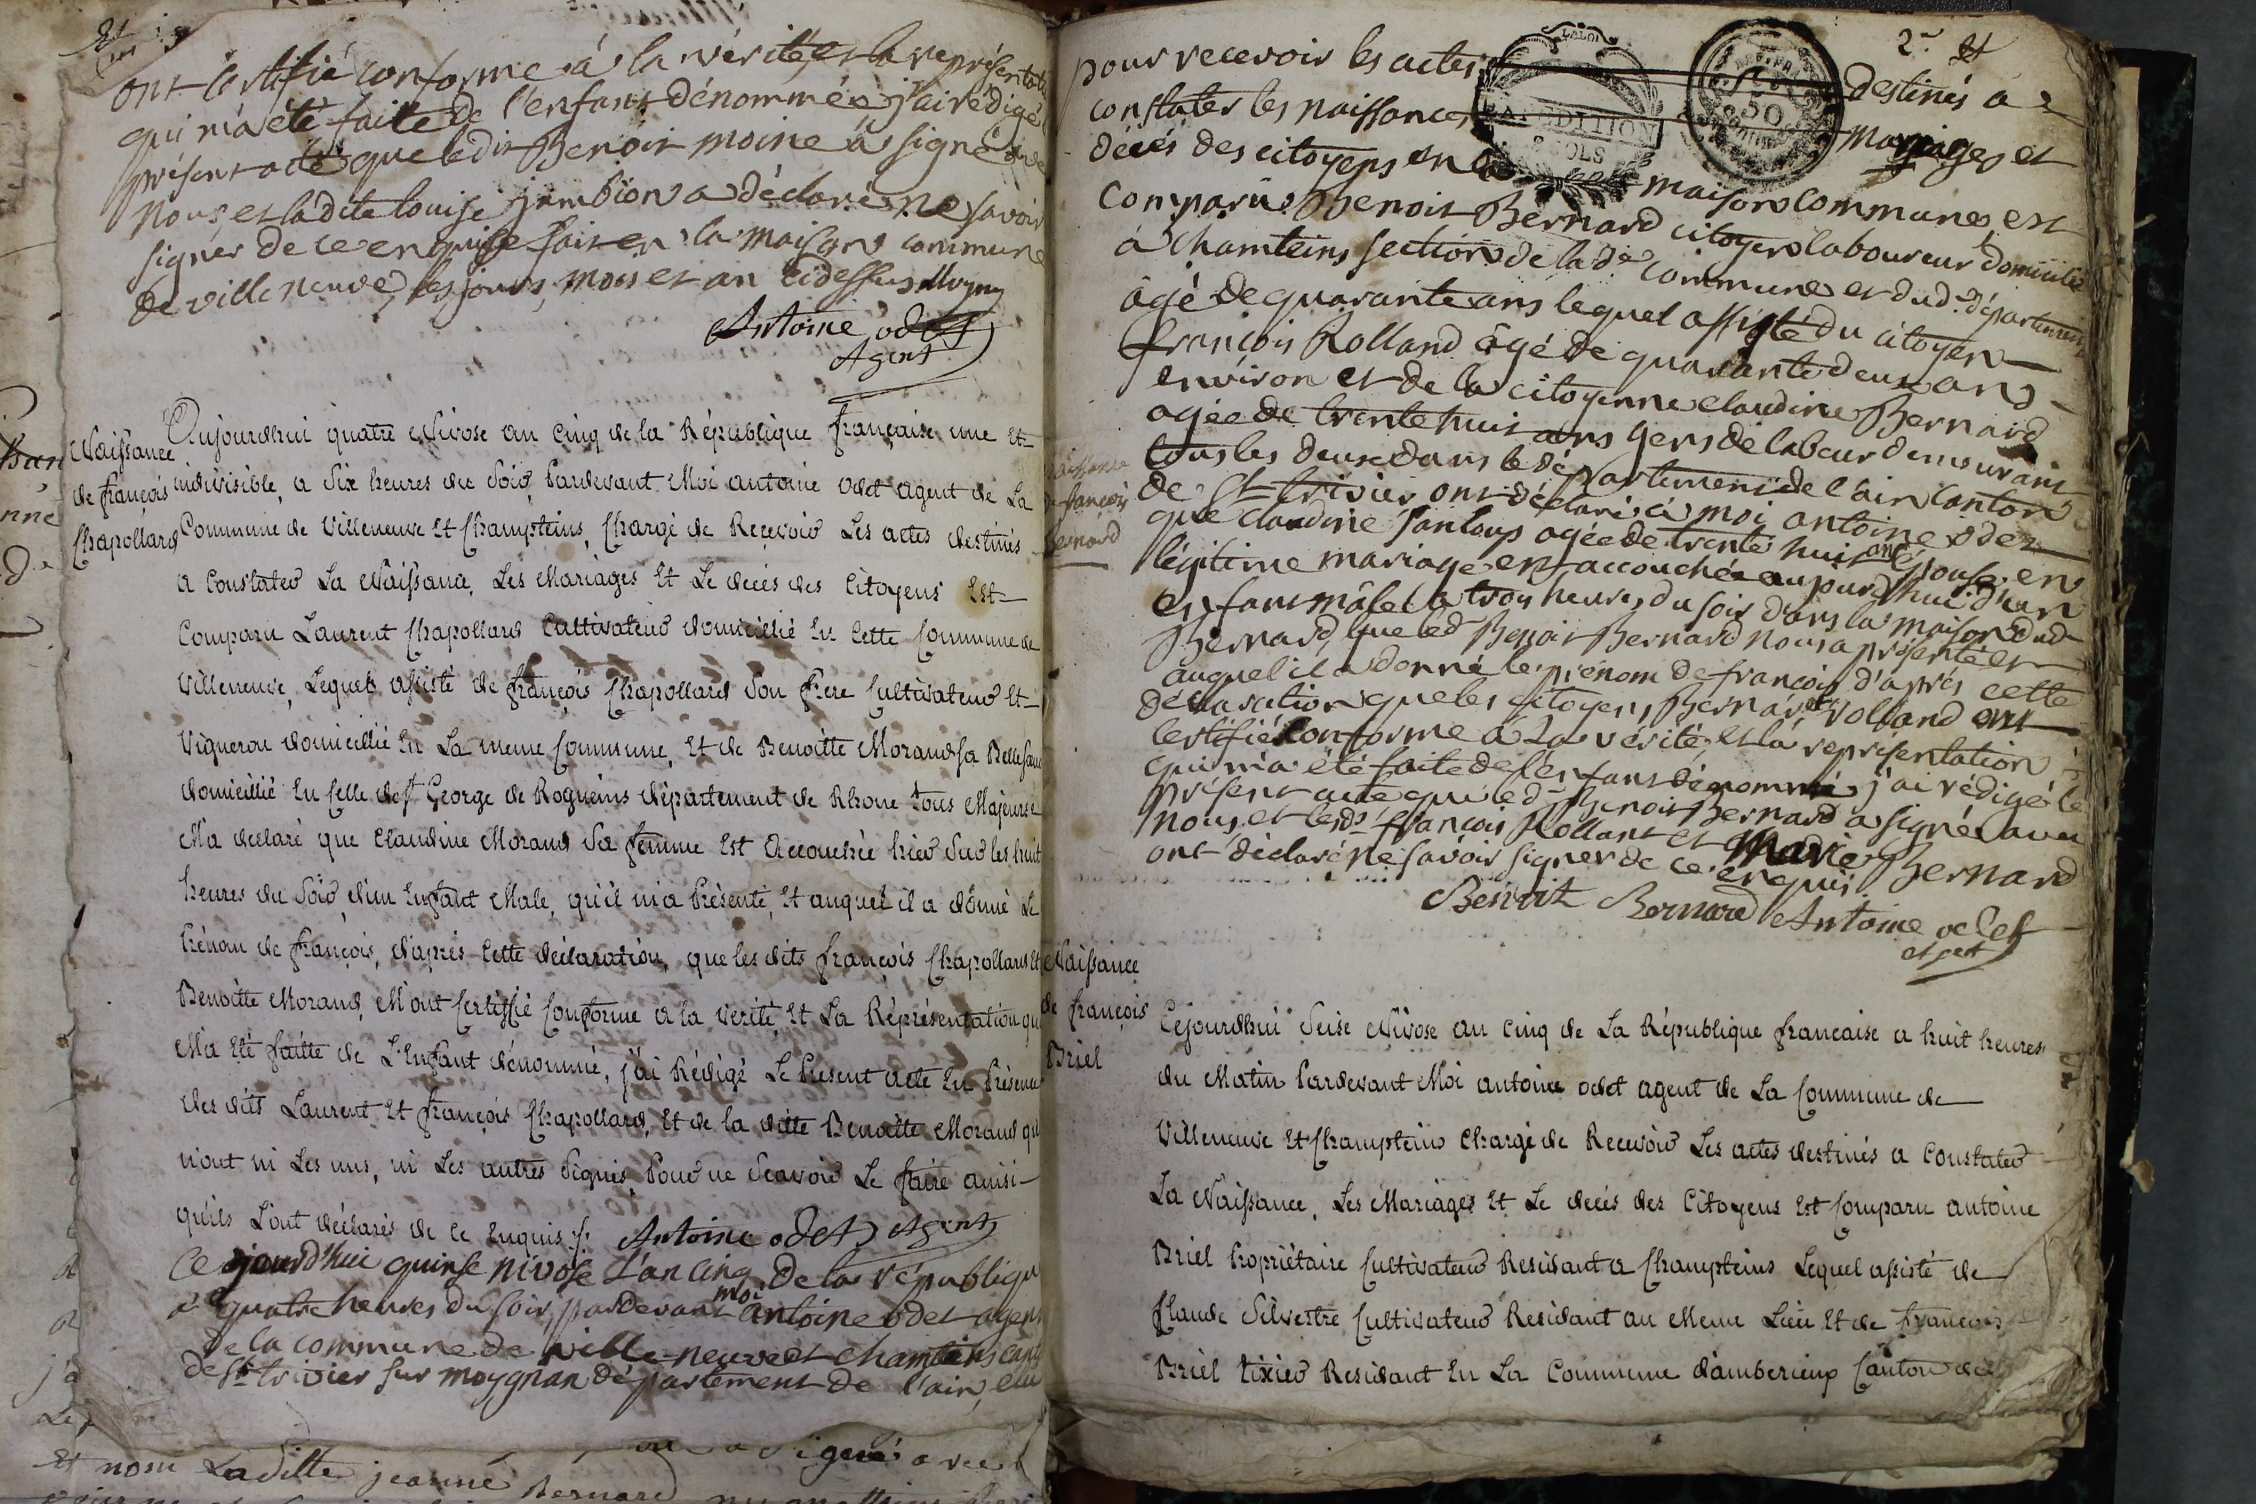 ont certifié conforme à la vérité, et la représentation
qui m'a été faite de l'enfant dénommé, j'ai rédigé
présent acte que ledit Benoit moine a signé
nous et la dite louise jambion a déclaré ne savoir
signer de ce enquise fait en la maison commune
de ville neuve, les jours, mois et an cidessus
Antoine odet
Agent
Naissance
de françois
Chapollard
Aujourdhui quatre Nivose an cinq de la République française une Et
indivisible, a Six heures du Soir, Pardevant Moi antoine odet agent de La
Commune de Villeneuve Et Champteins, Chargé de Recevoir Les actes destinés
a Constater La Naissance, Les Mariages Et Le decés des Citoyens Est
Comparu Laurent Chapollard Cultivateur domicillié En Cette Commune de
Villeneuve, Lequel assisté de françois Chapollard Son frere Cultivateur Et
Vigneron domicillié En La meme Commune, Et de Benoitte Morand Sa Belle
domicillié En Celle de St George de Rogneins département de Rhone tous Majeurs
M'a declaré que Claudine Morand Sa femme Est Accouchée hier Sur les huit
heures du Soir d'un Enfant Male, qu'il m'a Présenté, Et auquel il a donné Le
Prénom de françois, d'aprés Cette déclaration, que les dits françois Chapollard Et
Benoitte Morand, M'ont Certiffié Conforme a la verité, Et La Réprésentation qui
M'a Eté faitte de L'Enfant dénommé, j'ai Rédigé Le Présent acte En Présence
des dits Laurent Et françois Chapollard, Et de la ditte Benoitte Morand qui
n'ont ni Les uns, ni Les autres Signés, Pour ne Scavoir Le faire ainsi
qu'ils L'ont déclarés de Ce Enquis ./. Antoine odet Agent
Ce jourd'hui quinse nivose L'an cinq de la république
à quatre heures du soir, pardevant moi antoine odet agent
de la commune de ville-neuve et chamteins canton
de St trivier sur moygnan département de l'ain, élu
signé avec
Et nous Laditte jeanne Bernard
2me
pour recevoir les actes destinés a
LA LOI
EXPEDITION
2 SOLS
REP. FRA.
50
constater les naissances mariages et
décés des citoyens en maison commune est
comparus Benoit Bernard citoyen laboureur domicilié
à chamteins section de la de commune et dud. département
âgé de quarante ans lequel assisté du citoyen
françois Rolland âgé de quarante deux ans
environ et de la citoyenne claudine Bernard
agée de trente huit ans gens de labeur demeurant
tous les deux dans le département de l'ain canton
de St trivier, ont déclaré à moi antoine odet
que claudine Janloup agée de trente huit ans épouse en
légitime mariage est accouchée aujourd'hui d'un
enfant mâle à trois heures du soir dans la maison dud.
Bernard, que led. Benoit Bernard nous a présenté et
auquel il a donné le prénom de françois d'aprés cette
déclaration que les citoyens Bernard et rolland ont
certifié conforme à la vérité et la représentation
qui m'a été faite de l'enfant dénommé j'ai rédigé le
présent acte que led. Benoit Bernard a signé avec
nous et led. françois Rollant et Marie Bernard
ont déclaré ne savoir signer de ce enquis
Benoit Bernard Antoine odet
agent
Naissance
de françois
Bernard
Naissance
de françois
Briel
Cejourdhui Seise Nivose an cinq de La République francaise a huit heures
du Matin Pardevant Moi antoine odet agent de La Commune de
Villeneuve Et Champteins Chargé de Recevoir Les actes destinés a Constater
La Naissance, Les Mariages Et Le decés des Citoyens Est Comparu antoine
Briel Propriétaire Cultivateur Residant a Champteins Lequel assisté de
Claude Silvestre Cultivateur Residant au Meme Lieu Et de francois
Briel tixier Residant En La Commune d'amberieux Canton de